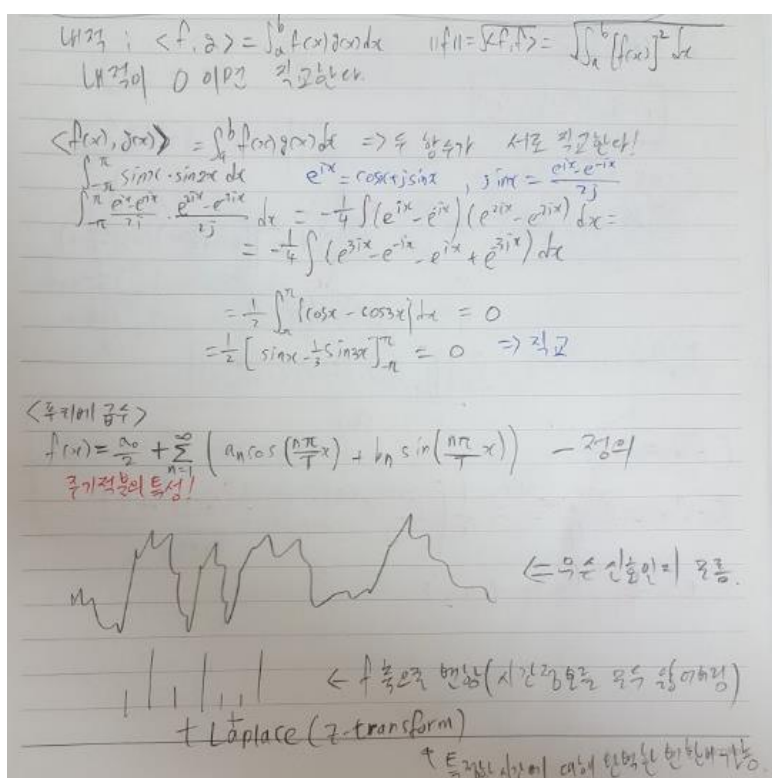 내적 ; <f, g> = ∫ₐᵇ f(x)g(x)dx ||f|| = √<f,f> = √∫ₐᵇ [f(x)]² dx
내적이 0 이면 직교한다.
<f(x), g(x)> = ∫ₐᵇ f(x)g(x)dx => 두 함수가 서로 직교한다!
∫_{-π}^{π} sinx·sin2x dx e^{ix} = cosx+jsinx , sinx = (e^{ix}-e^{-ix})/2j
∫_{-π}^{π} (e^{ix}-e^{-ix})/2j · (e^{2ix}-e^{-2ix})/2j dx = -1/4 ∫(e^{ix}-e^{-ix})(e^{2ix}-e^{-2ix}) dx =
= -1/4 ∫ (e^{3ix}-e^{-ix}-e^{ix}+e^{-3ix}) dx
= 1/2 ∫_{-π}^{π} [cosx - cos3x] dx = 0
= 1/2 [sinx - 1/3 sin3x]_{-π}^{π} = 0 => 직교
<푸리에 급수>
f(x) = a₀/2 + Σ_{n=1}^{∞} (aₙcos(nπ/T x) + bₙ sin(nπ/T x)) - 정의
주기적분의 특성!
<= 무슨 신호인지 모름.
← f 축으로 변환(시간정보를 모두 잃어버림)
+ Laplace (z-transform)
↑ 특정한 시간에 대해 완벽한 변환 가능.